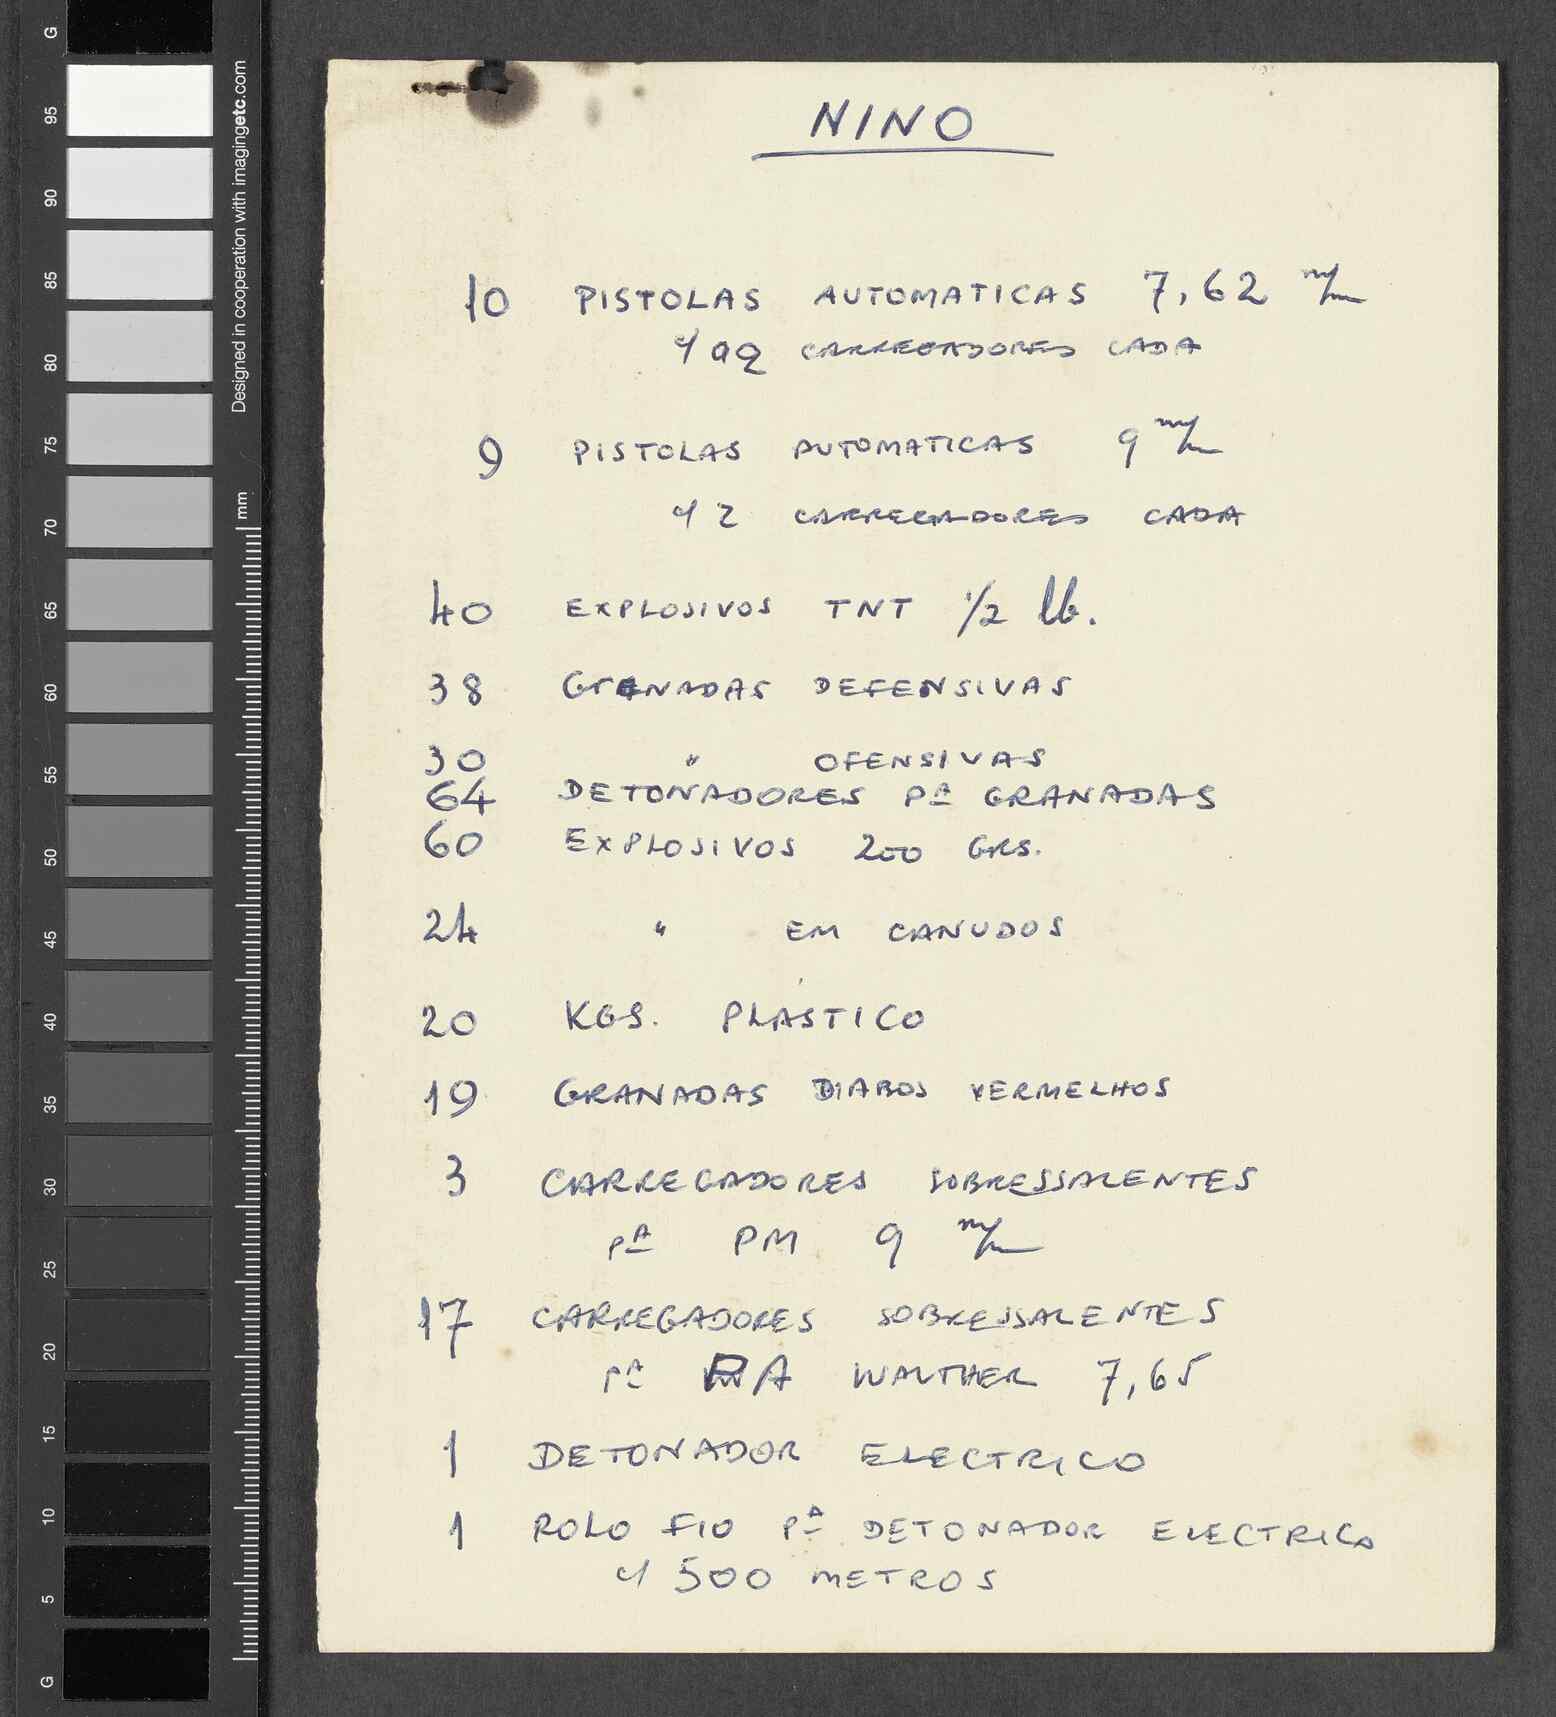 NINO
10 PISTOLAS AUTOMATICAS 7,62 m/m
c/ 2 CARREGADORES CADA
9 PISTOLAS AUTOMATICAS 9 m/m
c/ 2 CARREGADORES CADA
40 EXPLOSIVOS TNT 1/2 lb.
38 GRANADAS DEFENSIVAS
30 " OFENSIVAS
64 DETONADORES Pª GRANADAS
60 EXPLOSIVOS 200 GRS.
24 " EM CANUDOS
20 KGS. PLÁSTICO
19 GRANADAS DIABOS VERMELHOS
3 CARREGADORES SOBRESSALENTES
Pª PM 9 m/m
17 CARREGADORES SOBRESSALENTES
Pª PA WALTHER 7,65
1 DETONADOR ELECTRICO
1 ROLO FIO Pª DETONADOR ELECTRICO
c/ 500 METROS
G
95
90
85
80
75
70
65
60
55
50
45
40
35
30
25
20
15
10
5
G
Designed in cooperation with imagingetc.com
mm